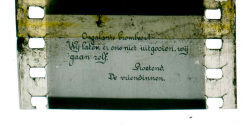 Ongalante bromboer!
Wij laten er ons niet uitgooien, wij
gaan zelf.
Groetend.
De vriendinnen.